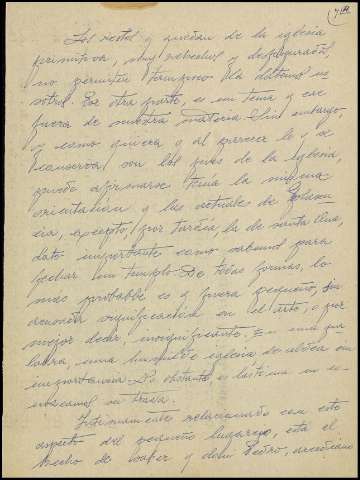 Los restos q quedan de la iglesia
primitiva, muy rehechos y desfigurados
no permiten tampoco la datemos no
sotros. Por otra parte, es un tema q cae
fuera de nuestra materia. Sin embargo,
y como quiera q al parecer le q se
conserva son los pies de la iglesia,
puede afirmarse tenía la misma
orientación q las actuales de
cia, excepto, por tardía, la de santa Ana,
dato importante como sabemos para
fechar un templo. De todas formas, lo
mas probable es q fuera pequeño, sin
significación en el arte, o por
mejor decir, insignificante. En una pa
labra, una humilde iglesia de aldea sin
importancia. No obstante, es lástima no co
nozcamos su traza.
Intimamente relacionado con este
aspecto del pequeño lugarejo, está el
hecho de haber q don Pedro, arcediano